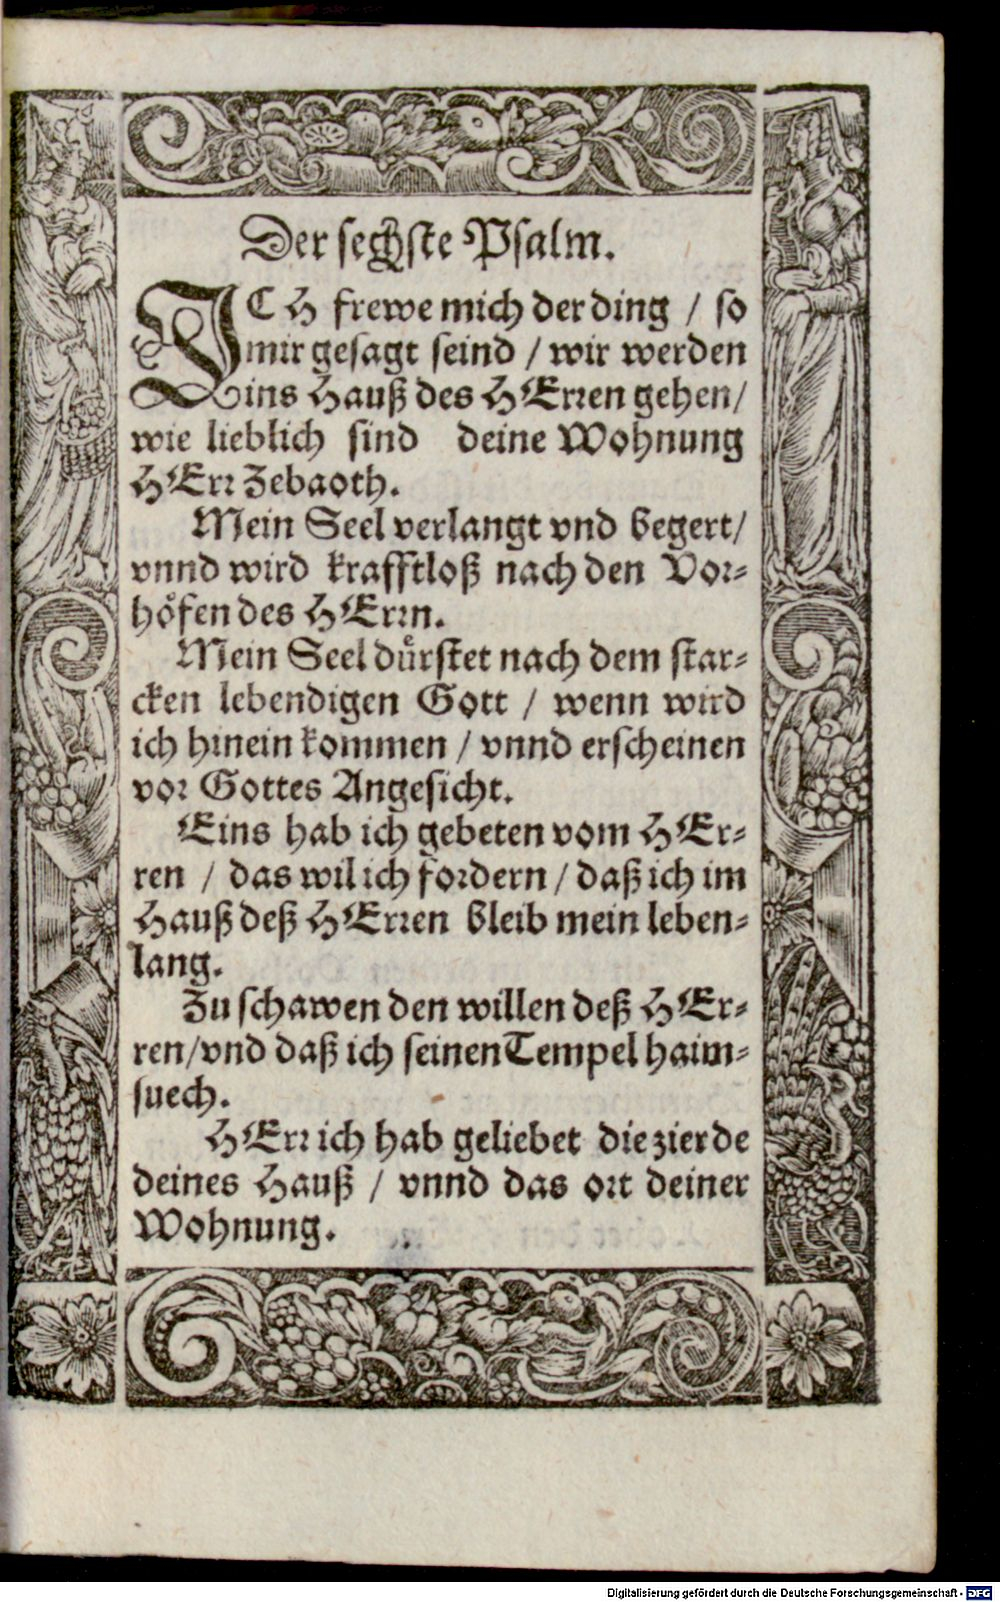 Der sechste Psalm.
ICH frewe mich der ding / so
mir gesagt seind / wir werden
ins Hauß des HErren gehen/
wie lieblich sind deine Wohnung
HErr Zebaoth.
Mein Seel verlangt vnd begert/
vnnd wird krafftloß nach den Vor-
höfen des HErrn.
Mein Seel dürstet nach dem star-
cken lebendigen Gott / wenn wird
ich hinein kommen / vnnd erscheinen
vor Gottes Angesicht.
Eins hab ich gebeten vom HEr-
ren / das wil ich fordern / daß ich im
Hauß deß HErren bleib mein leben-
lang.
Zu schawen den willen deß HEr-
ren/vnd daß ich seinen Tempel haim-
suech.
HErr ich hab geliebet die zierde
deines Hauß / vnnd das ort deiner
Wohnung.
Digitalisierung gefördert durch die Deutsche Forschungsgemeinschaft - DFG